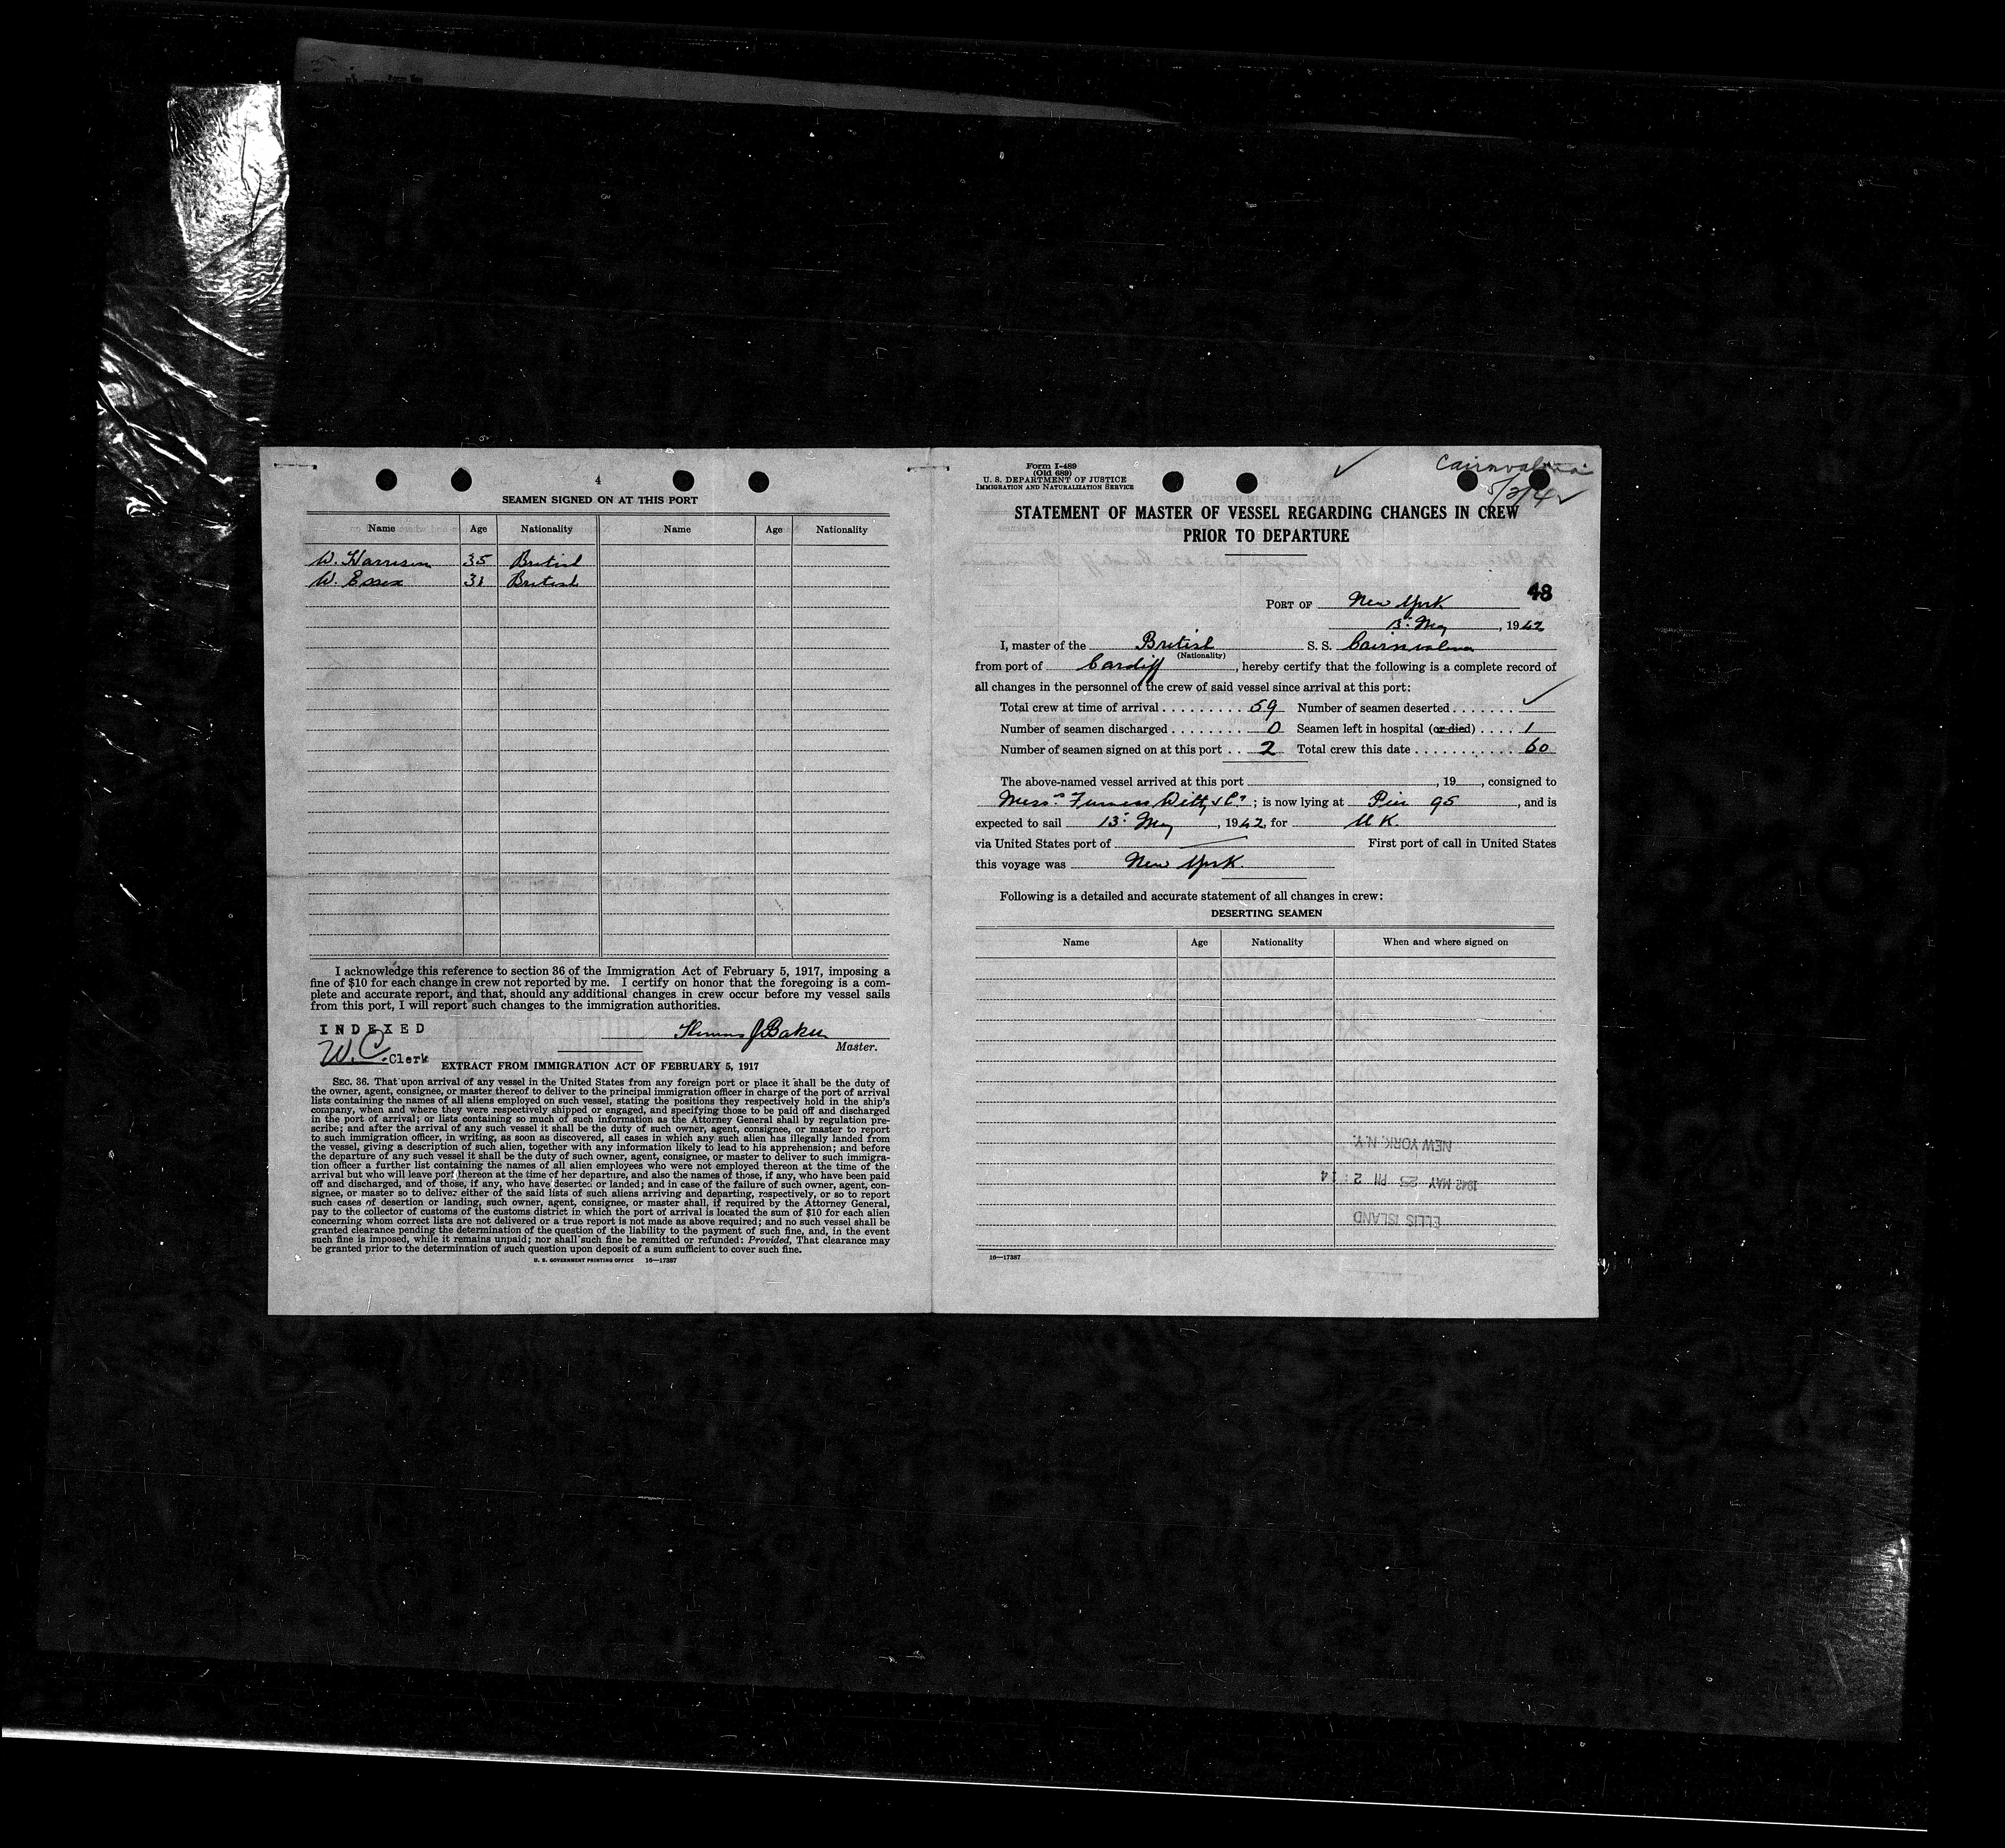 4
SEAMEN SIGNED ON AT THIS PORT
Name Age Nationality Name Age Nationality
W. Harrison 35 British
W. Essex 31 British
I acknowledge this reference to section 36 of the Immigration Act of February 5, 1917, imposing a
fine of $10 for each change in crew not reported by me. I certify on honor that the foregoing is a com-
plete and accurate report, and that, should any additional changes in crew occur before my vessel sails
from this port, I will report such changes to the immigration authorities.
INDEXED
W.C. Clerk
Thomas J Baker
Master.
EXTRACT FROM IMMIGRATION ACT OF FEBRUARY 5, 1917
SEC. 36. That upon arrival of any vessel in the United States from any foreign port or place it shall be the duty of
the owner, agent, consignee, or master thereof to deliver to the principal immigration officer in charge of the port of arrival
lists containing the names of all aliens employed on such vessel, stating the positions they respectively hold in the ship's
company, when and where they were respectively shipped or engaged, and specifying those to be paid off and discharged
in the port of arrival; or lists containing so much of such information as the Attorney General shall by regulation pre-
scribe; and after the arrival of any such vessel it shall be the duty of such owner, agent, consignee, or master to report
to such immigration officer, in writing, as soon as discovered, all cases in which any such alien has illegally landed from
the vessel, giving a description of such alien, together with any information likely to lead to his apprehension; and before
the departure of any such vessel it shall be the duty of such owner, agent, consignee, or master to deliver to such immigra-
tion officer a further list containing the names of all alien employees who were not employed thereon at the time of the
arrival but who will leave port thereon at the time of her departure, and also the names of those, if any, who have been paid
off and discharged, and of those, if any, who have deserted or landed; and in case of the failure of such owner, agent, con-
signee, or master so to deliver either of the said lists of such aliens arriving and departing, respectively, or so to report
such cases of desertion or landing, such owner, agent, consignee, or master shall, if required by the Attorney General,
pay to the collector of customs of the customs district in which the port of arrival is located the sum of $10 for each alien
concerning whom correct lists are not delivered or a true report is not made as above required; and no such vessel shall be
granted clearance pending the determination of the question of the liability to the payment of such fine, and, in the event
such fine is imposed, while it remains unpaid; nor shall such fine be remitted or refunded: Provided, That clearance may
be granted prior to the determination of such question upon deposit of a sum sufficient to cover such fine.
U. S. GOVERNMENT PRINTING OFFICE 16—17387
Form I-489
(Old 689)
U. S. DEPARTMENT OF JUSTICE
IMMIGRATION AND NATURALIZATION SERVICE
Cairnvalona
STATEMENT OF MASTER OF VESSEL REGARDING CHANGES IN CREW
PRIOR TO DEPARTURE
48
PORT OF New York
13: May, 1942
I, master of the British S. S. Cairnvalona
(Nationality)
from port of Cardiff, hereby certify that the following is a complete record of
all changes in the personnel of the crew of said vessel since arrival at this port:
Total crew at time of arrival 59 Number of seamen deserted ✓
Number of seamen discharged 0 Seamen left in hospital (or died) 1
Number of seamen signed on at this port 2 Total crew this date 60
The above-named vessel arrived at this port , 19 , consigned to
Messrs Furness Withy & Co; is now lying at Pier 95, and is
expected to sail 13: May, 1942, for U K.
via United States port of First port of call in United States
this voyage was New York.
Following is a detailed and accurate statement of all changes in crew:
DESERTING SEAMEN
Name Age Nationality When and where signed on
NEW YORK, N.Y.
1942 MAY 25 PM 2:14
ELLIS ISLAND
16—17387